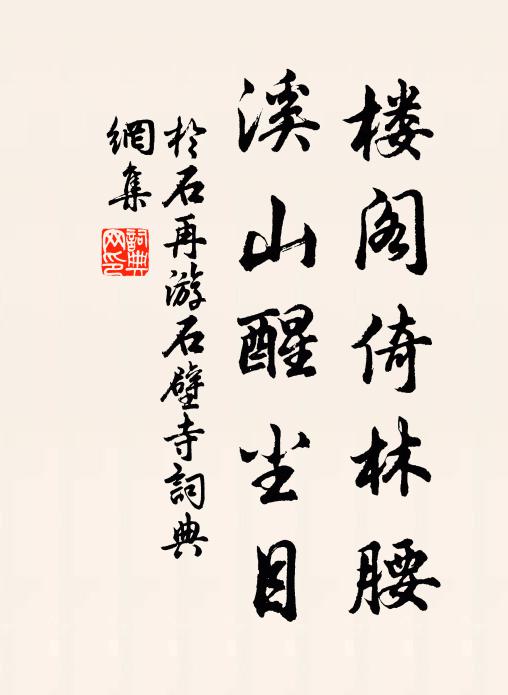 楼阁倚林腰
溪山醒尘目
於石再游石壁寺詞典
網集
詞典
网印